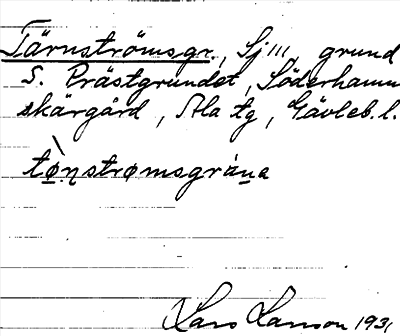 Tärnströmsgr., Sj 111, grund
S. Prästgrundet, Söderhamn
skärgård, Ala tg, Gävleb. l.
tø̀ṇstrømsgrúna
Lars Larsson 1931